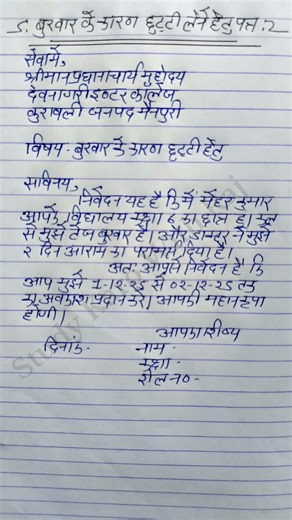 5. बुखार के कारण छुट्टी लेने हेतु पत्र:2
सेवामें,
श्रीमान प्रधानाचार्य मुहोदय
देवनागरी इण्टर कालेज
कुरावली जनपद मैनपुरी
विषय - बुखार के कारण छुट्टी हेतु
सविनय,
निवेदन यह है कि मैं मेहर कुमार
आपके विद्यालय कक्षा 6 का छात्र हूं। कल
से मुझे तेज बुखार है। और डाक्टर ने मुझे
२ दिन आराम का परामर्श दिया है।
अतः आपसे निवेदन है कि
आप मुझे 1-12-25 से 02-12-25 तक
का अवकाश प्रदान करे। आपकी महान कृपा
होगी।
आपका शिष्य
दिनांक- नाम-
कक्षा-
रोल न०-